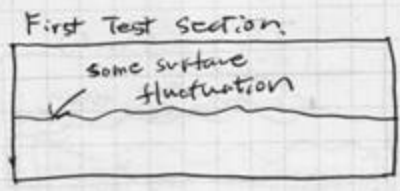 First Test section.
some surface
fluctuation